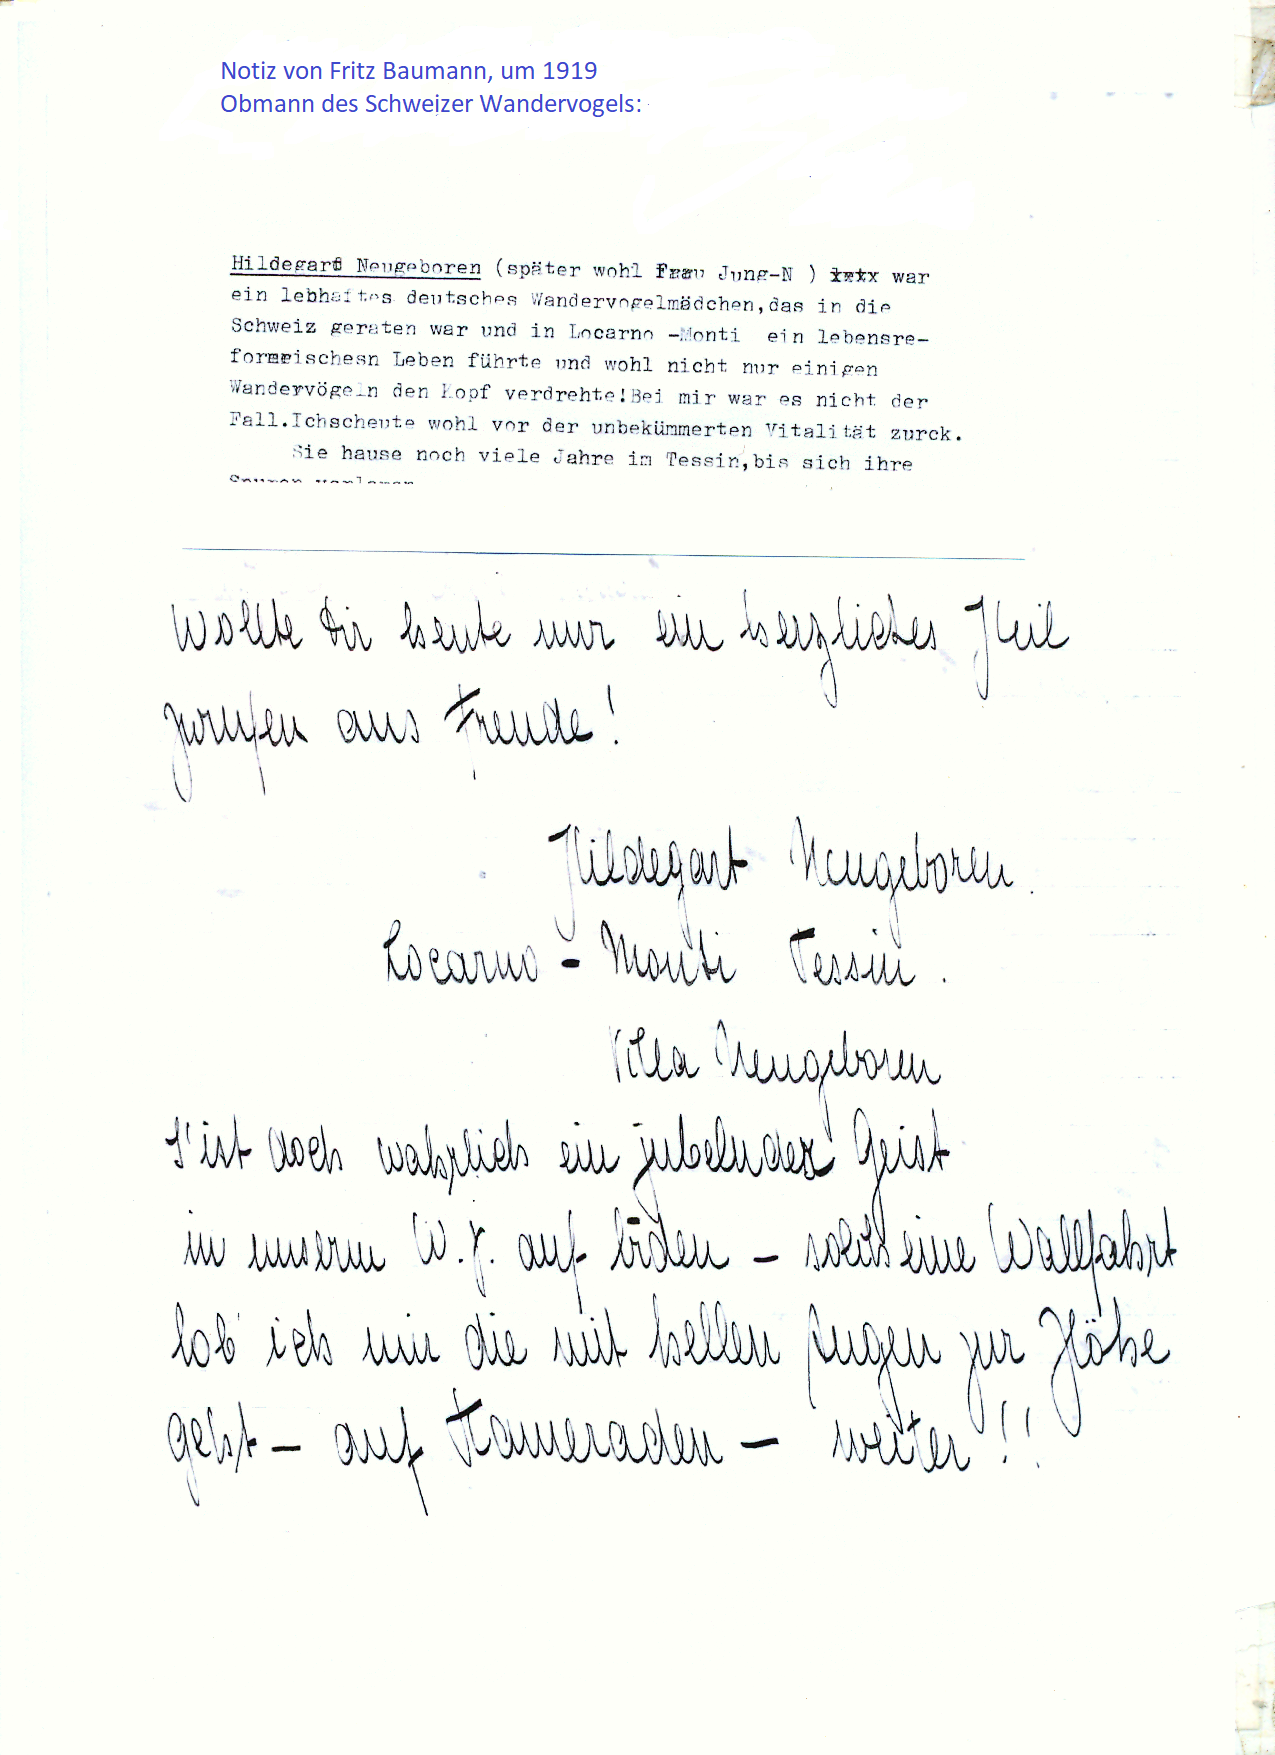 Notiz von Fritz Baumann, um 1919
Obmann des Schweizer Wandervogels:
Hildegard Neugeboren (später wohl Frau Jung-N ) war
ein lebhaftes deutsches Wandervogelmädchen,das in die
Schweiz geraten war und in Locarno -Monti ein lebensre-
formerischesn Leben führte und wohl nicht nur einigen
Wandervögeln den Kopf verdrehte!Bei mir war es nicht der
Fall.Ichscheute wohl vor der unbekümmerten Vitalität zurck.
Sie hause noch viele Jahre im Tessin,bis sich ihre
Spuren verloren
Wollte Dir heute nur ein herzliches Heil
zurufen aus Freude!
Hildegart Neugeboren.
Locarno - Monti Tessin.
Villa Neugeboren
S'ist doch wahrlich ein jubelnder Geist
in unserm W.V. auf – solch eine Wallfahrt
lob' ich mir die mit hellen Augen zur Höhe
geht – auf Kameraden – weiter!!